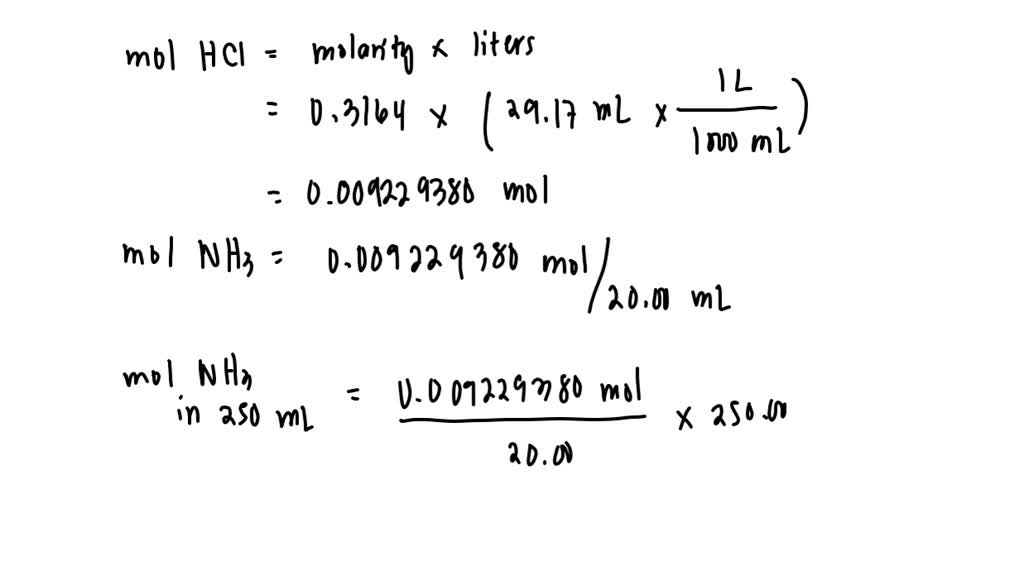 mol HCl = molarity x liters
= 0.3164 x (29.17 mL x 1L / 1000 mL)
= 0.009229380 mol
mol NH3 = 0.009229380 mol / 20.00 mL
mol NH3 in 250 mL = 0.009229380 mol / 20.00 x 250.00